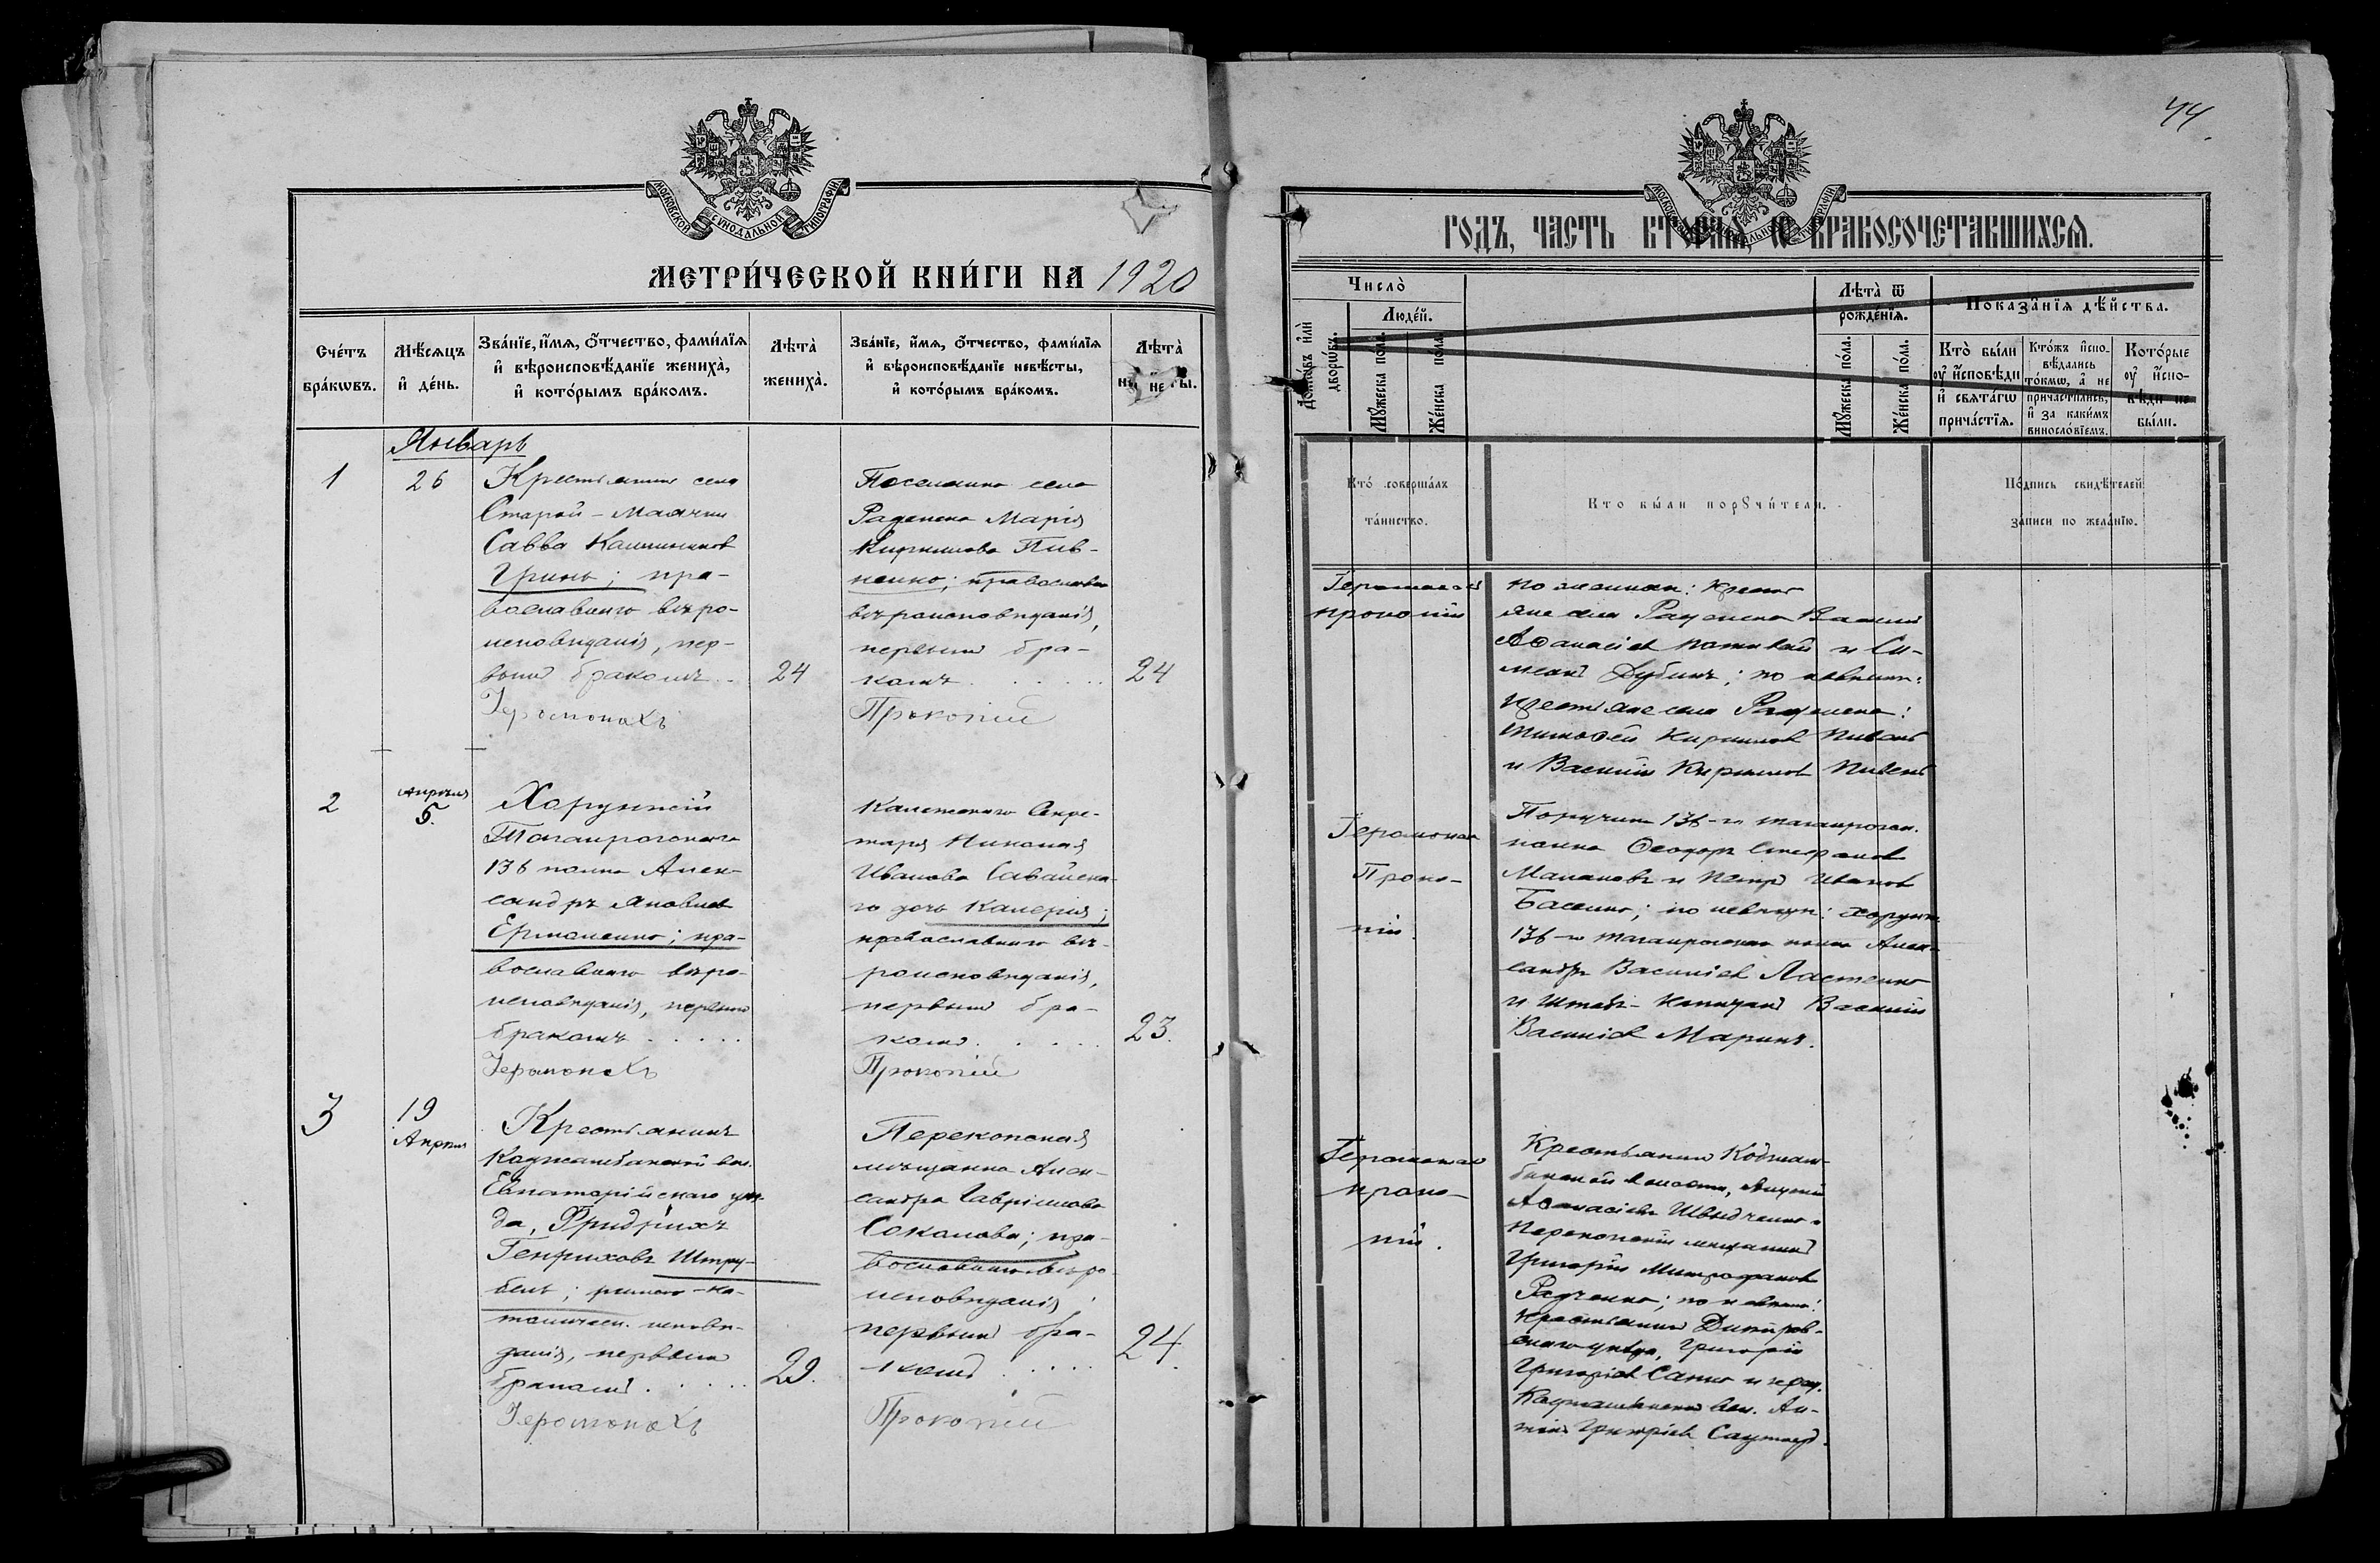 МОСКОВСКОЙ СѴНОДАЛЬНОЙ ТИПОГРАФІИ
МЕТРИ́ЧЕСКОЙ КНИ́ГИ НА 1920
Сче́тъ бра́кωвъ.
Мѣ́сяцъ и҆ де́нь.
Зва́нїе, и҆́мя, ѻ҆́тчество, фами́лїя
и҆ вѣроисповѣ́данїе жениха̀,
и҆ кото́рымъ бра́комъ.
Лѣта̀
жениха̀.
Зва́нїе, и҆́мя, ѻ҆́тчество, фами́лїя
и҆ вѣроисповѣ́данїе невѣ́сты,
и҆ кото́рымъ бра́комъ.
Лѣта̀
Январь
1
26
Крестьянинъ села
Старой-Маячки
Савва
Гринь; пра-
вославнаго вѣро-
исповѣданія, пер-
вымъ бракомъ . .
24
Іеромонахъ
Поселянка села
Раденска Марія
Кириллова Пив-
ненко; православн
вѣроисповѣданія,
первымъ бра-
комъ . . . . .
24
Прокопій
2
Апрѣля
5.
Хорунжій
Таганрогскаго
136 полка Алек-
сандръ Яковлев
Ермоленко; пра-
вославнаго вѣро-
исповѣданія, первымъ
бракомъ . . . . .
Іеромонахъ
Коллежскаго Секре-
таря Николая
Иванова Савайска-
го дочь Валерія;
православнаго вѣ-
роисповѣданія,
первымъ бра-
комъ . . . . .
23.
Прокопій
3
19
Апрѣля
Крестьянинъ
Коджамбакской вол.
Евпаторійскаго уѣз-
да, Фридрихъ
Генриховъ Штру-
бель; римско-ка-
толическ. исповѣ-
данія, первымъ
бракомъ . . . . .
29.
Іеромонахъ
Перекопская
мѣщанка Алек-
сандра Гавріилова
Соколова; пра-
вославнаго вѣро-
исповѣданія
первымъ бра-
комъ . . . .
24.
Прокопій
44
МОСКОВСКОЙ СѴНОДАЛЬНОЙ ТИПОГРАФІИ
ГОДЪ, ЧАСТЬ ВТОРАЯ, Ѡ БРАКОСОЧЕТАВШИХСЯ.
Число̀
Домѡ́въ и҆лѝ дворѡ́въ.
Люде́й.
Мꙋ́жеска по́ла.
Же́нска по́ла.
Лѣта̀ ѿ рожде́нїя.
Мꙋ́жеска по́ла.
Же́нска по́ла.
Показа̑нїя дѣ́йства.
Кто̀ бы́ли
ᲂу҆ и҆сповѣ́ди
и҆ свята́гѡ
прича́стїя.
Кто́жъ и҆спо-
вѣ́дались
то́кмѡ, а҆ не
причасти́лись,
и҆ за каки́мъ
винослові́емъ.
Кото́рые
ᲂу҆ и҆спо-
вѣ́ди не
бы́ли.
Кто́ соверша́лъ
та́инство.
Кто бы́ли порꙋчи́тели.
По́дпись свидѣ́телей
за́писи по жела́нїю.
Іеромонах
Прокопій
По женихѣ: крест
яне села Раденска Василій
Аѳанасіев и Си-
меонъ Дубина; по невѣстѣ:
крестьяне села Раденска:
Тимоѳей Кириллов Пивень
и Василій Кириллов Пивень
Іеромонах
Проко-
пій.
Поручикъ 136-го таганрогск.
полка Ѳеодоръ Стефанов
Малаховъ и Петръ Иванов
Басенко; по невѣстѣ: хорунж.
136-го таганрогскаго полка Алек-
сандръ Василіев Ластенко
и Штабс-Капитанъ Василій
Василіев Маринъ.
Іеромонах
Проко-
пій.
Крестьянинъ Коджам-
бакской волости, Андрей
Аѳанасіевъ Швыдченко и
Перекопскій мѣщанинъ
Григорій Митрофанов
Радченко; по невѣстѣ:
крестьянинъ Днѣпров-
скаго уѣзда, Григорій
Григоріев Санко и
вол. Ан-
Григоріев